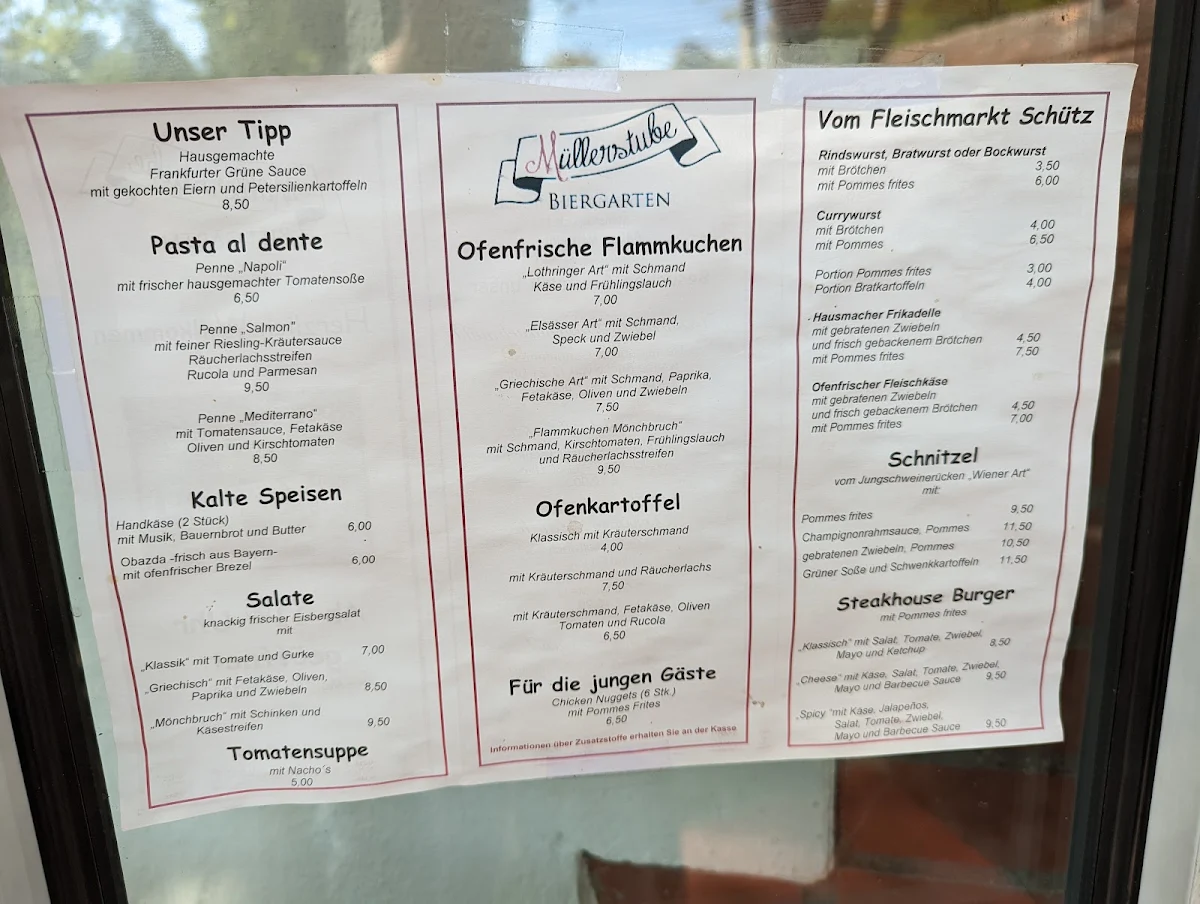 Unser Tipp
Hausgemachte
Frankfurter Grüne Sauce
mit gekochten Eiern und Petersilienkartoffeln
8,50
Pasta al dente
Penne „Napoli"
mit frischer hausgemachter Tomatensoße
6,50
Penne „Salmon"
mit feiner Riesling-Kräutersauce
Räucherlachsstreifen
Rucola und Parmesan
9,50
Penne „Mediterrano"
mit Tomatensauce, Fetakäse
Oliven und Kirschtomaten
8,50
Kalte Speisen
Handkäse (2 Stück)
mit Musik, Bauernbrot und Butter 6,00
Obazda -frisch aus Bayern-
mit ofenfrischer Brezel 6,00
Salate
knackig frischer Eisbergsalat
mit
„Klassik" mit Tomate und Gurke 7,00
„Griechisch" mit Fetakäse, Oliven,
Paprika und Zwiebeln 8,50
„Mönchbruch" mit Schinken und
Käsestreifen 9,50
Tomatensuppe
mit Nacho´s
5,00
Müllerstube
BIERGARTEN
Ofenfrische Flammkuchen
„Lothringer Art" mit Schmand
Käse und Frühlingslauch
7,00
„Elsässer Art" mit Schmand,
Speck und Zwiebel
7,00
„Griechische Art" mit Schmand, Paprika,
Fetakäse, Oliven und Zwiebeln
7,50
„Flammkuchen Mönchbruch"
mit Schmand, Kirschtomaten, Frühlingslauch
und Räucherlachsstreifen
9,50
Ofenkartoffel
Klassisch mit Kräuterschmand
4,00
mit Kräuterschmand und Räucherlachs
7,50
mit Kräuterschmand, Fetakäse, Oliven
Tomaten und Rucola
6,50
Für die jungen Gäste
Chicken Nuggets (6 Stk.)
mit Pommes Frites
6,50
Informationen über Zusatzstoffe erhalten Sie an der Kasse
Vom Fleischmarkt Schütz
Rindswurst, Bratwurst oder Bockwurst
mit Brötchen 3,50
mit Pommes frites 6,00
Currywurst
mit Brötchen 4,00
mit Pommes 6,50
Portion Pommes frites 3,00
Portion Bratkartoffeln 4,00
Hausmacher Frikadelle
mit gebratenen Zwiebeln
und frisch gebackenem Brötchen 4,50
mit Pommes frites 7,50
Ofenfrischer Fleischkäse
mit gebratenen Zwiebeln
und frisch gebackenem Brötchen 4,50
mit Pommes frites 7,00
Schnitzel
vom Jungschweinerücken „Wiener Art"
mit:
Pommes frites 9,50
Champignonrahmsauce, Pommes 11,50
gebratenen Zwiebeln, Pommes 10,50
Grüner Soße und Schwenkkartoffeln 11,50
Steakhouse Burger
mit Pommes frites
„Klassisch" mit Salat, Tomate, Zwiebel,
Mayo und Ketchup 8,50
„Cheese" mit Käse, Salat, Tomate, Zwiebel,
Mayo und Barbecue Sauce 9,50
„Spicy "mit Käse, Jalapeños,
Salat, Tomate, Zwiebel,
Mayo und Barbecue Sauce 9,50